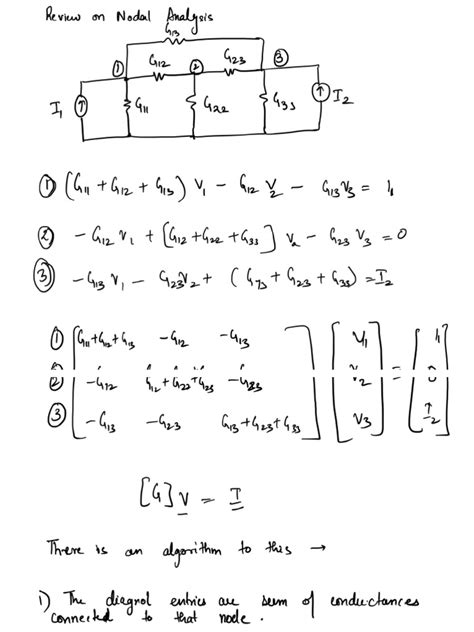 Review on Nodal Analysis
G13
① G12 ② G23 ③
I1 G11 G22 G33 I2
① (G11 + G12 + G13) V1 - G12 V2 - G13 V3 = I1
② - G12 V1 + [G12 + G22 + G33] V2 - G23 V3 = 0
③ - G13 V1 - G23 V2 + (G13 + G23 + G33) = I2
① G11+G12+G13 -G12 -G13 V1 I1
② -G12 G12+G22+G23 -G23 V2 = 0
③ -G13 -G23 G13+G23+G33 V3 I2
[G] V = I
There is an algorithm to this →
1) The diagnol entries are sum of conductances
connected to that node.